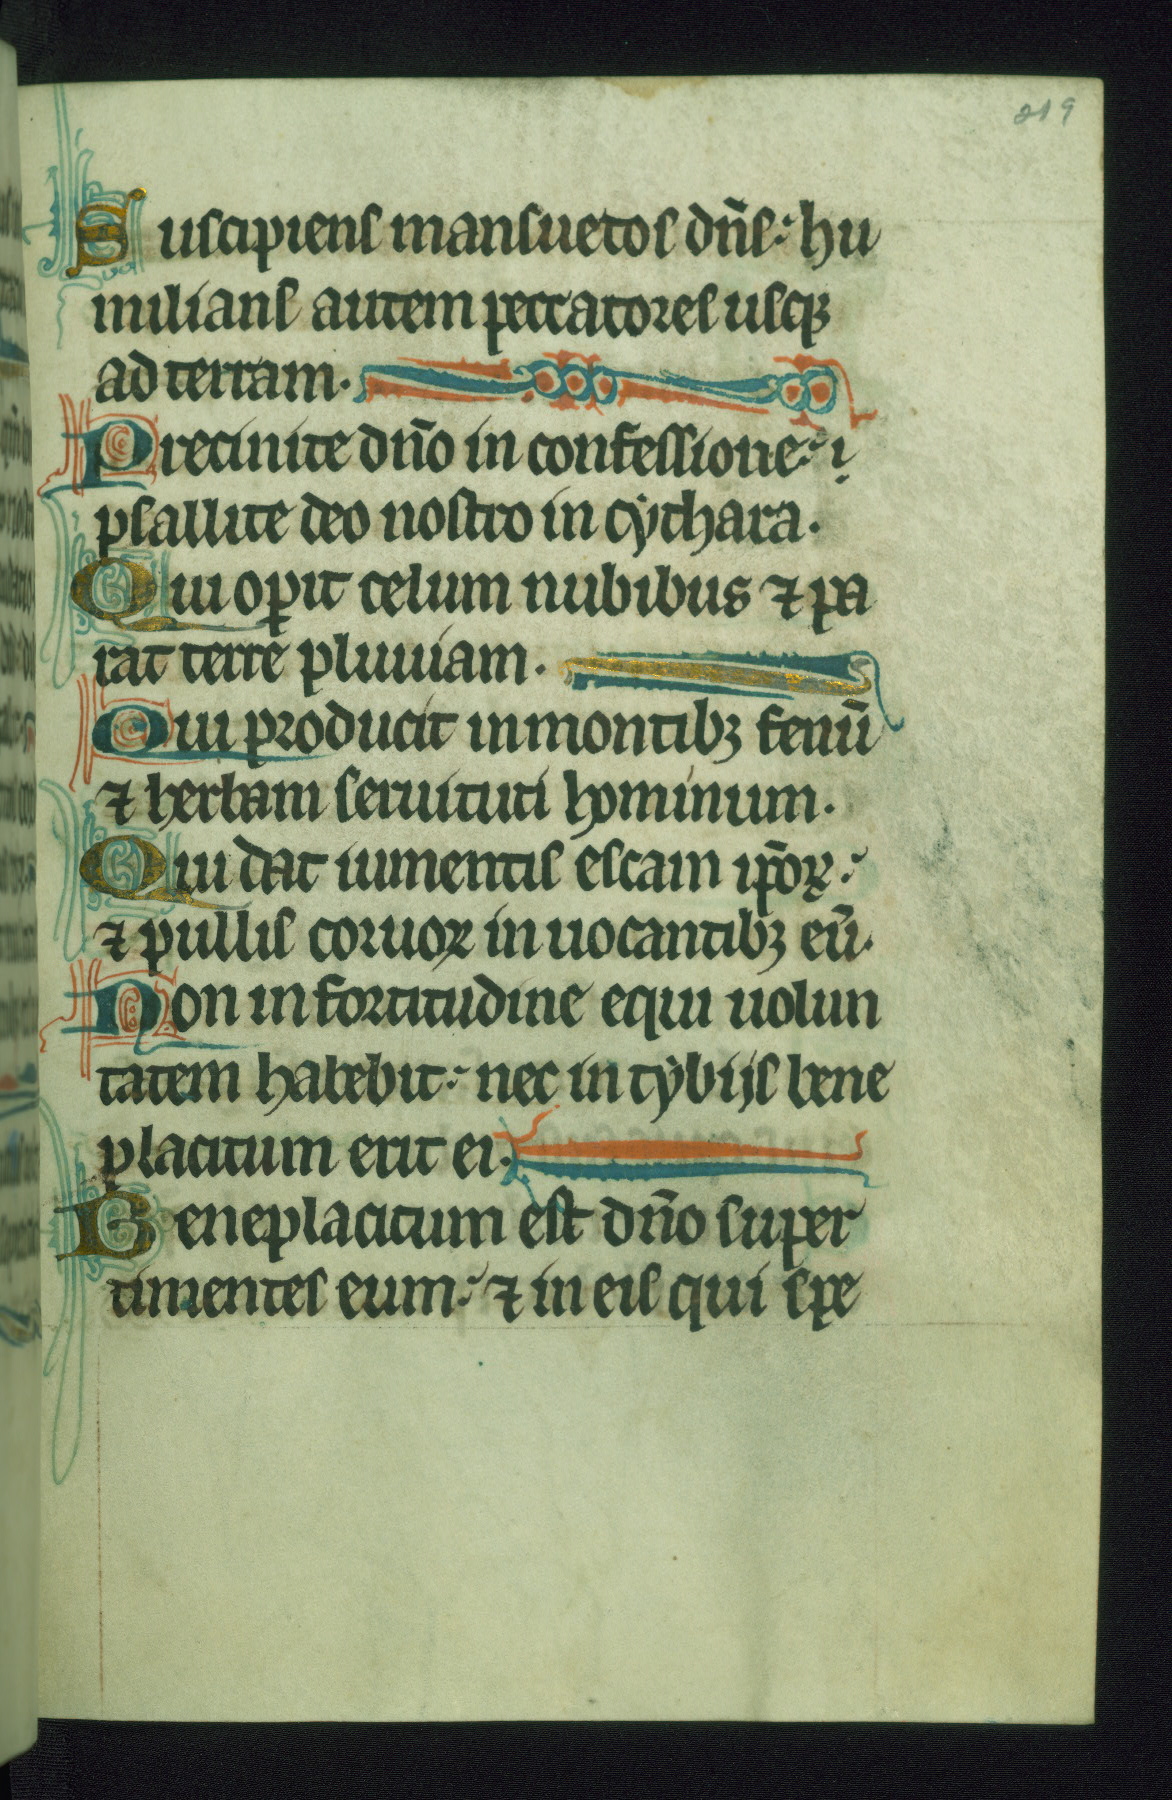 219
Suscipiens mansuetos dn̄s: hu
milians autem peccatores usqꝫ
ad terram.
Precinite dn̄o in confessione: ⁊
psallite deo nostro in cythara.
Qui oꝑit celum nubibus ⁊ pa
rat terre pluuiam.
Qui producit in montibꝫ fenū
⁊ herbam seruituti hominum.
Qui dat iumentis escam ip̄oꝝ:
⁊ pullis coruoꝝ inuocantibꝫ eū.
Non in fortitudine equi uolun
tatem habebit: nec in tybijs bene
placitum erit ei.
Beneplacitum est dn̄o super
timentes eum: ⁊ in eis qui spe